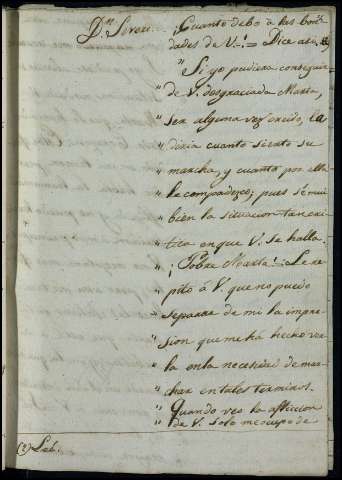 D.n Seren. ¡Cuanto debo à las bon-
dades de V.! = Dice asi:
"Si yo pudiera conseguir
"de V. desgraciada Marta,
"ser alguna vez creido, la
"diria cuanto siento su
"marcha, y cuanto por ella
"la compadezco; pues sé mui
"bien la situacion tan cri-
"tica en que V. se halla.
"¡Pobre Marta! = Le re-
"pito á V. que no puedo
"separar de mi la impre-
"sion que me há hecho ver
"la en la necesidad de mar-
"char en tales terminos.
"Quando veo la afliccion
"de V. solo me ocupo de